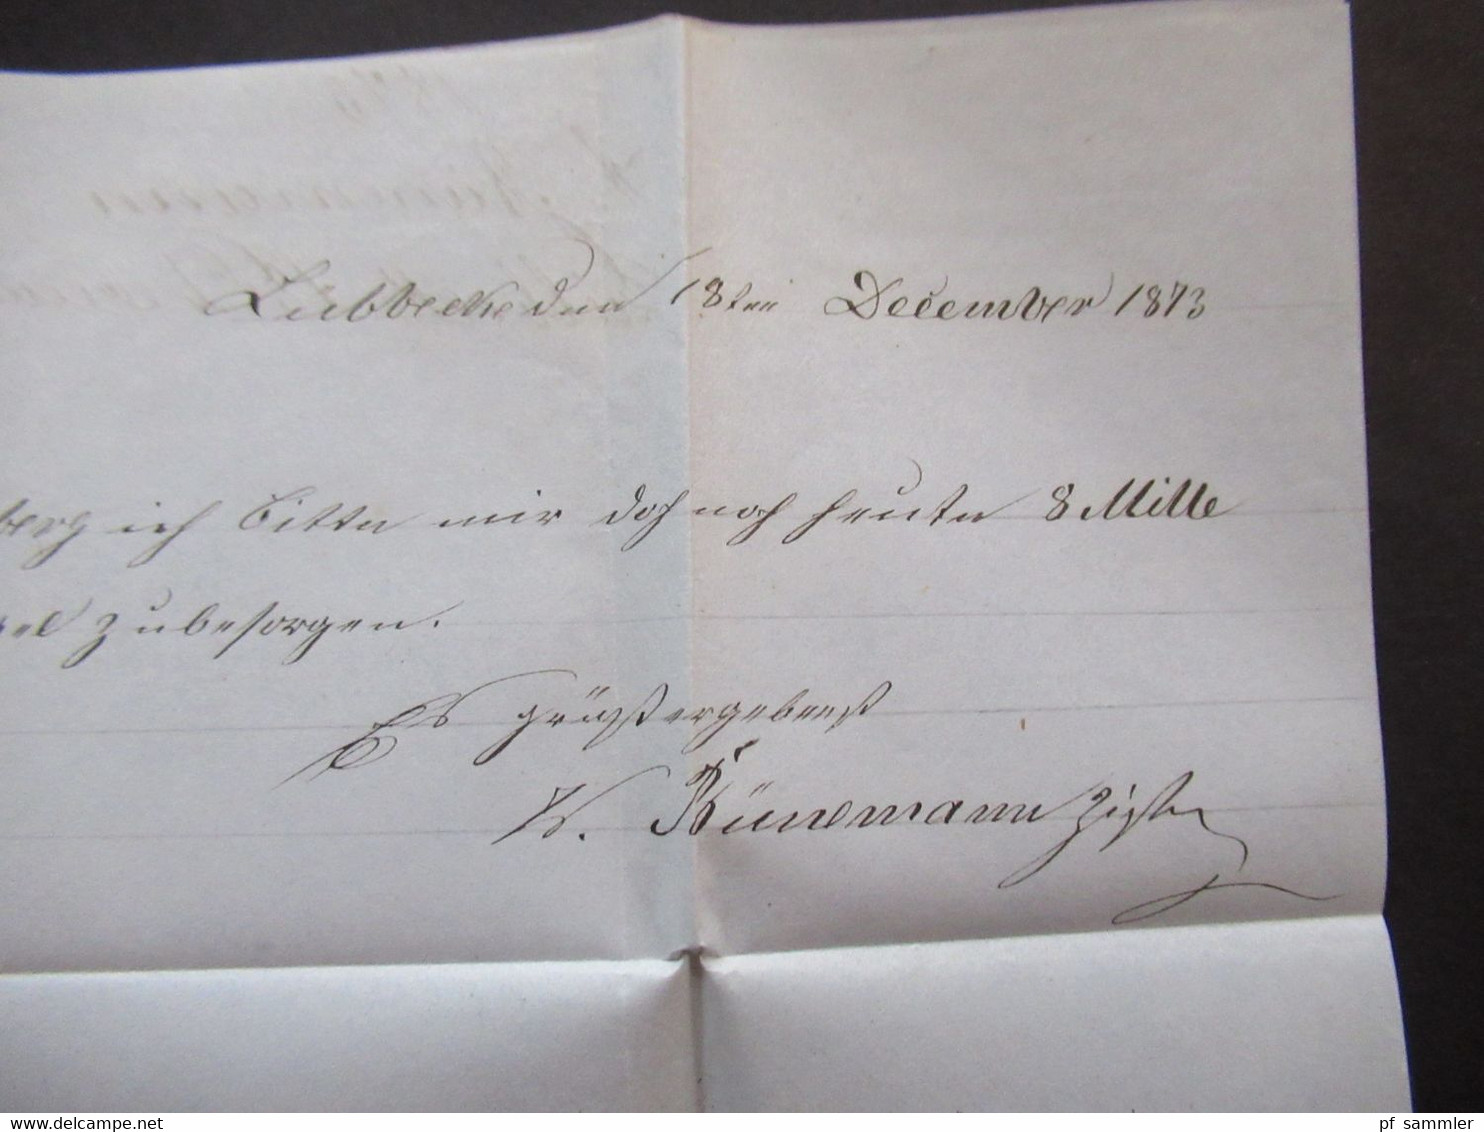 Lübbecke den 18ten December 1873
berg ich bitte mir doch noch heute 8 Mille
zu besorgen.
Es grüßt ergebenst
W. Bünemann
www.delcampe.net
pf_sammler